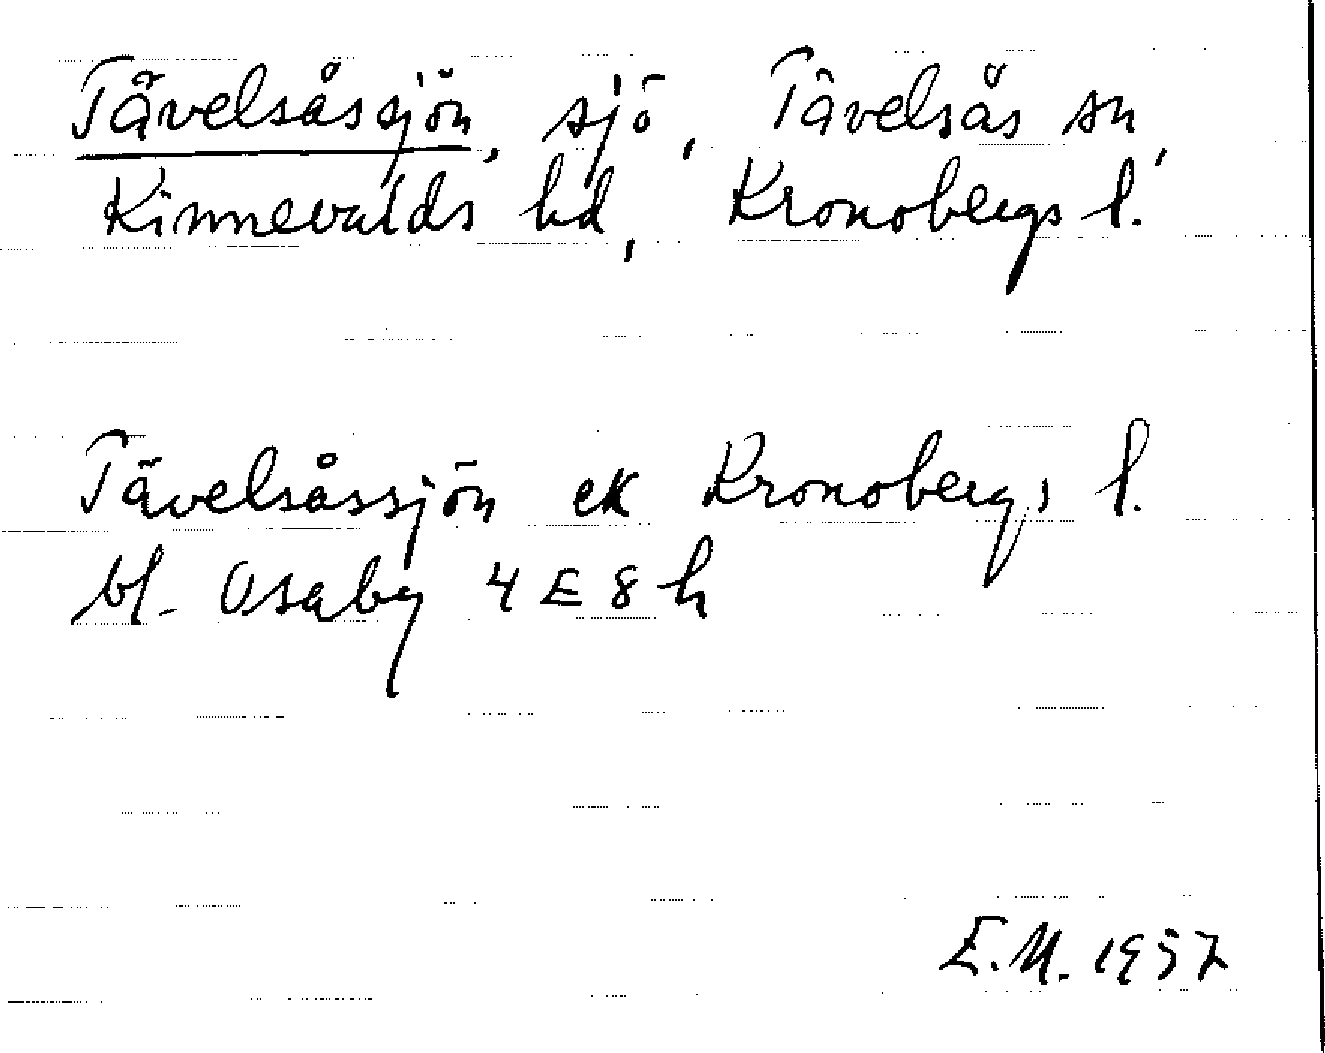 Tävelsåssjön, sjö, Tävelsås sn,
Kinnevalds hd, Kronobergs l.
Tävelsåssjön ek Kronobergs l.
bl. Osaby 4 E 8 h
E.M. 1957